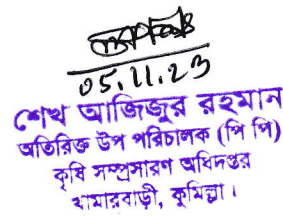 05.11.23
শেখ আজিজুর রহমান
অতিরিক্ত উপ পরিচালক (পি পি)
কৃষি সম্প্রসারণ অধিদপ্তর
খামারবাড়ী, কুমিল্লা।